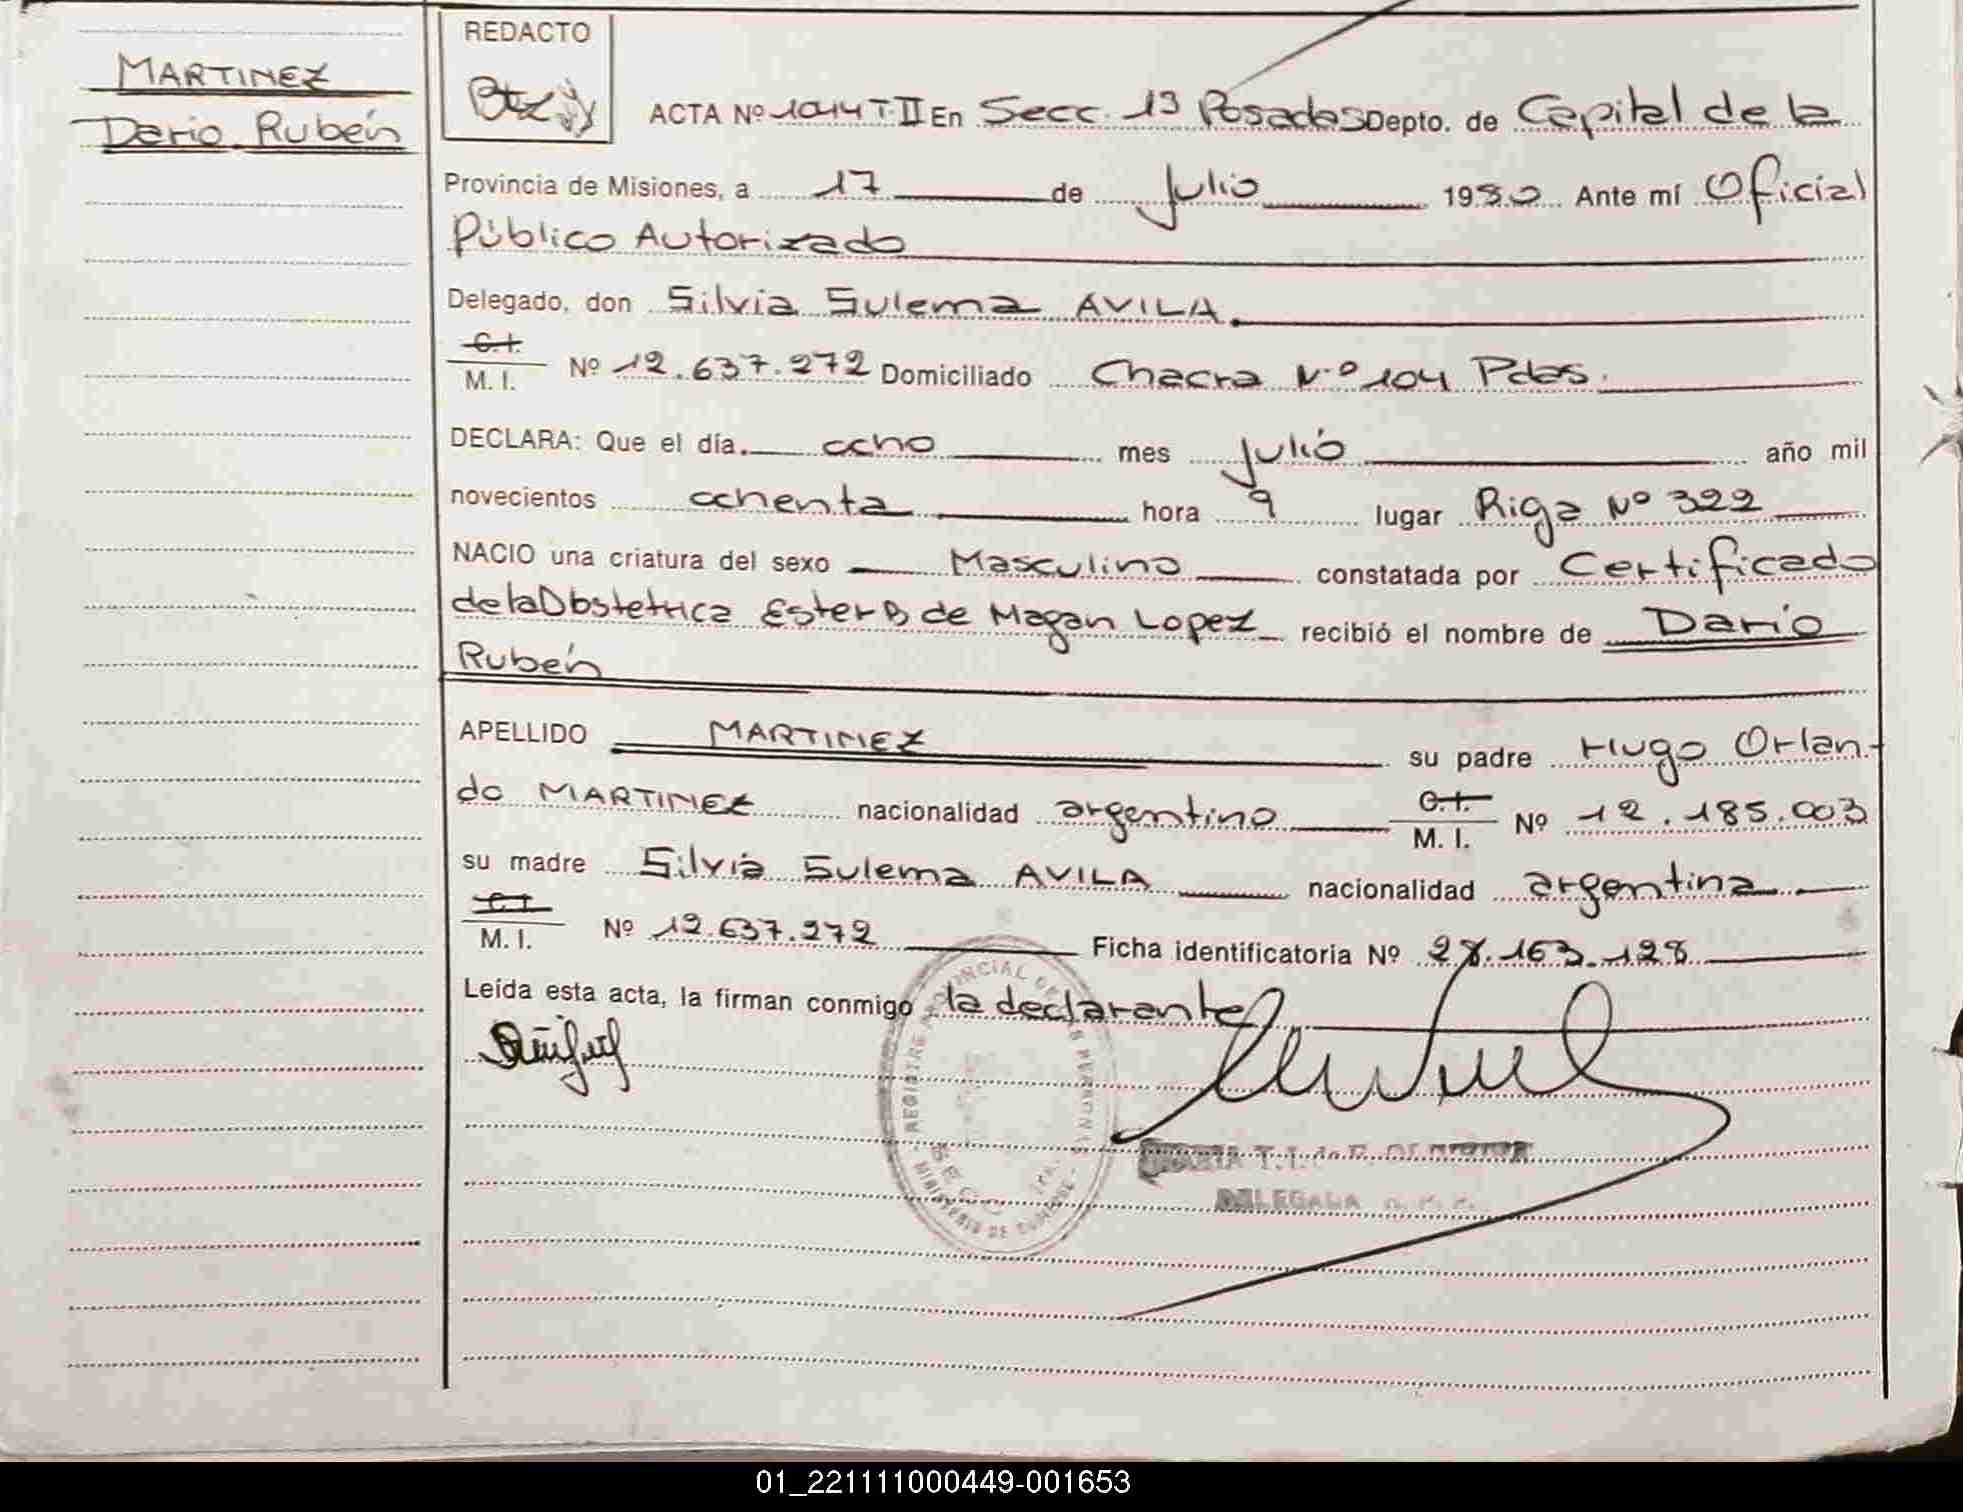 MARTINEZ
Dario Rubén
REDACTO
ACTA Nº 1014 T.II En Secc. 13 Posadas Depto. de Capital de la
Provincia de Misiones, a 17 de Julio 1980 Ante mí Oficial
Público Autorizado
Delegado, don Silvia Sulema AVILA.
C.I.
M. I. Nº 12.637.272 Domiciliado Chacra Nº 104 Pdas.
DECLARA: Que el día ocho mes Julio año mil
novecientos ochenta hora 9 lugar Riga Nº 322
NACIO una criatura del sexo Masculino constatada por Certificado
de la Obstetrica Ester B de Magan Lopez recibió el nombre de Dario
Rubén
APELLIDO MARTINEZ su padre Hugo Orlan-
do MARTINEZ nacionalidad argentino C.I. M. I. Nº 12.185.003
su madre Silvia Sulema AVILA nacionalidad argentina
C.I.
M. I. Nº 12.637.272 Ficha identificatoria Nº 28.163.128
Leída esta acta, la firman conmigo la declarante
REGISTRO PROVINCIAL DE LAS PERSONAS
SECC.
MINISTERIO DE GOBIERNO
DELEGADA
01_221111000449-001653